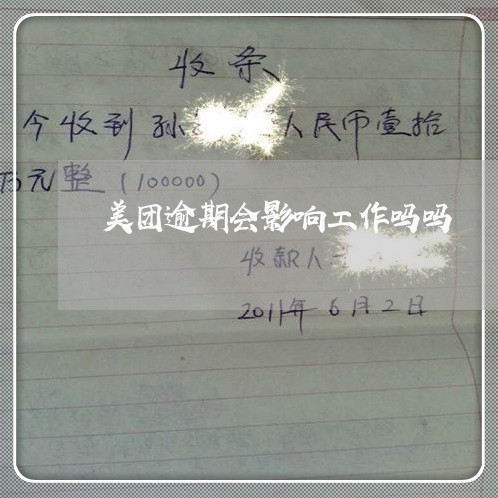 收条
今收到孙人民币壹拾
万元整(100000)
美团逾期会影响工作吗吗
收款人
2011年6月2日